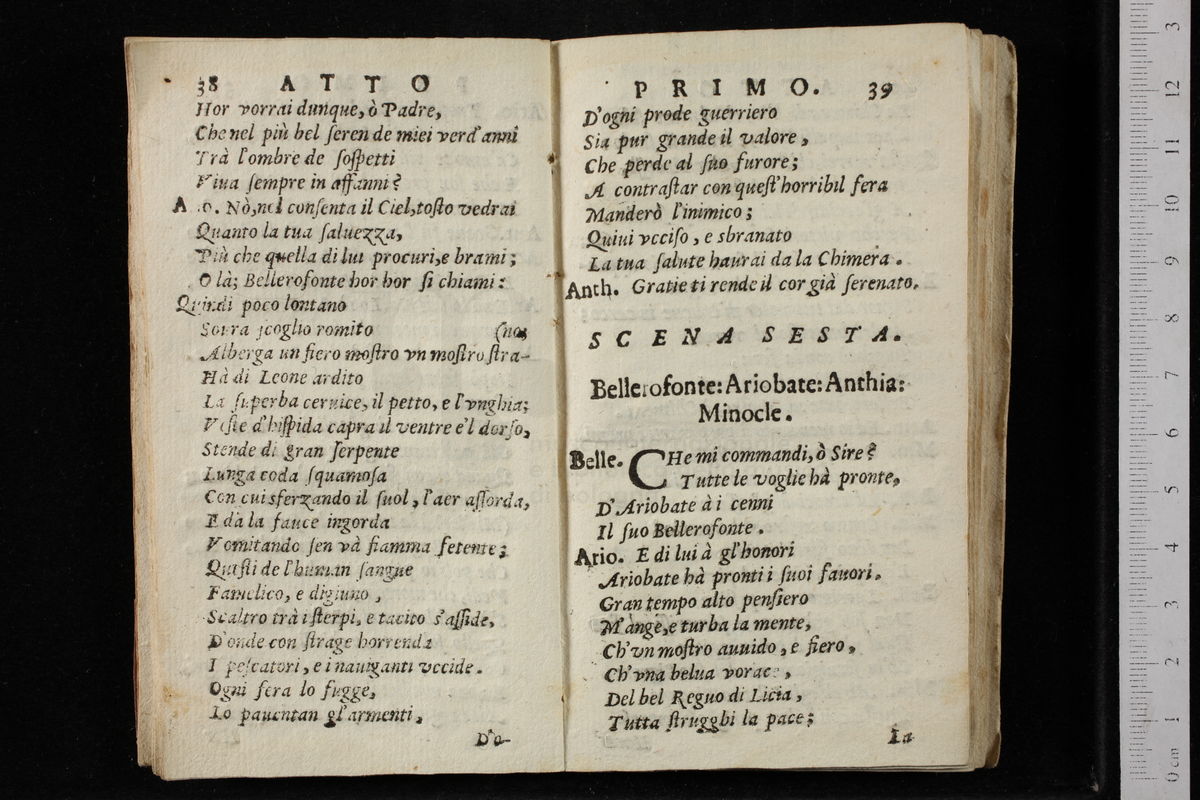 38 ATTO
Hor vorrai dunque, ò Padre,
Che nel più bel ſeren de miei verd'anni
Trà l'ombre de ſoſpetti
Viua ſempre in affanni?
A .o. Nò, nel conſenta il Ciel, toſto vedrai
Quanto la tua ſaluezza,
Più che quella di lui procuri, e brami;
O là; Bellerofonte hor hor ſi chiami:
Quindi poco lontano
Soura ſcoglio romito (no,
Alberga un fiero moſtro vn moſtro ſtra-
Hà di Leone ardito
La ſuperba ceruice, il petto, e l'vnghia;
Veſte d'hiſpida capra il ventre e'l dorſo,
Stende di gran ſerpente
Lunga coda ſquamoſa
Con cui sferzando il ſuol, l'aer aſſorda,
E da la fauce ingorda
Vomitando ſen và fiamma fetente;
Quaſi de l'human ſangue
Famelico, e digiuno,
Scaltro trà i ſterpi, e tacito s'aſſide,
D'onde con ſtrage horrenda
I peſcatori, e i nauiganti vccide.
Ogni fera lo fugge,
Lo pauentan gl'armenti,
D'o-
PRIMO. 39
D'ogni prode guerriero
Sia pur grande il valore,
Che perde al ſuo furore;
A contraſtar con queſt'horribil fera
Manderò l'inimico;
Quiui vcciſo, e sbranato
La tua ſalute haurai da la Chimera.
Anth. Gratie ti rende il cor già ſerenato.
SCENA SESTA.
Bellerofonte: Ariobate: Anthia:
Minocle.
Belle. CHe mi commandi, ò Sire?
Tutte le voglie hà pronte,
D'Ariobate à i cenni
Il ſuo Bellerofonte.
Ario. E di lui à gl'honori
Ariobate hà pronti i ſuoi fauori.
Gran tempo alto penſiero
M'ange, e turba la mente,
Ch'vn moſtro auuido, e fiero,
Ch'vna belua vorace,
Del bel Reguo di Licia,
Tutta ſtrugghi la pace;
La